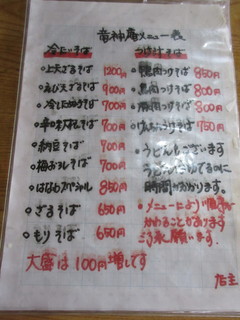 竜神庵メニュー表
冷たいそば
○上天ざるそば 1200円
○えび天ざるそば 900円
○冷したぬきそば 700円
700円
○納豆そば 700円
○梅おろしそば 700円
○はなねスペシャル 850円
○ざるそば 650円
○もりそば 650円
大盛は100円増しです
つけ汁そば
○鴨肉つけそば 850円
肉つけそば 800円
○豚肉つけそば 800円
○けんちんつけそば 750円
○うどんもございます
うどんはゆでるのに
時間がかかります。
○メニューにより
かわることがあります
願います
店主